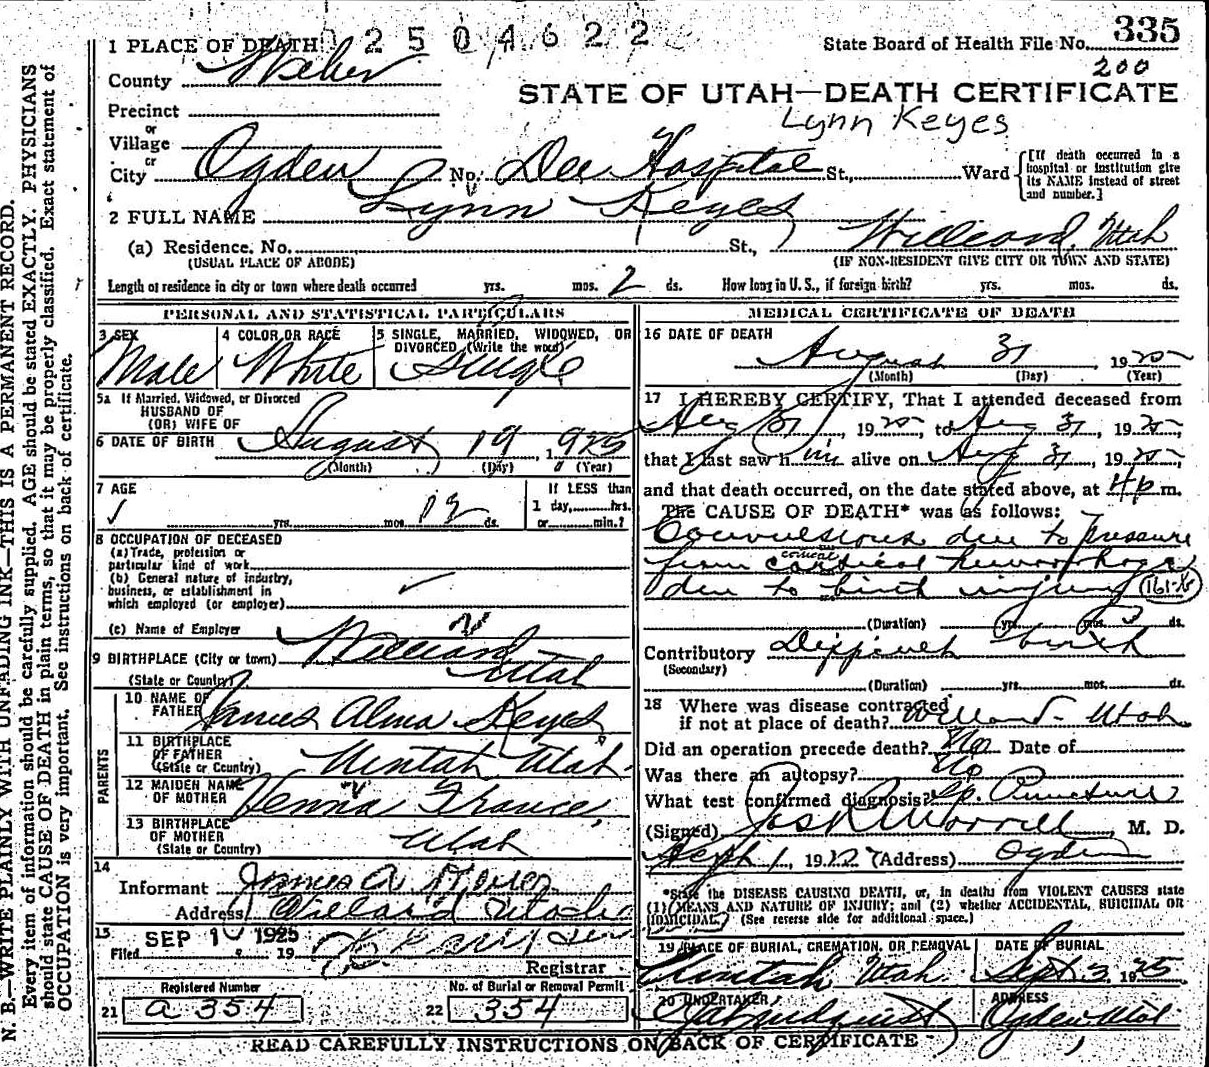 2504622
State Board of Health File No. 335
200
1 PLACE OF DEATH
County Weber
STATE OF UTAH—DEATH CERTIFICATE
Precinct
Lynn Keyes
or
Village
or
City Ogden No. Dee Hospital St., Ward [If death occurred in a hospital or institution give its NAME instead of street and number.]
2 FULL NAME Lynn Keyes
(a) Residence, No. St., Willard, Utah
(USUAL PLACE OF ABODE) (IF NON-RESIDENT GIVE CITY OR TOWN AND STATE)
Length of residence in city or town where death occurred yrs. mos. 2 ds. How long in U. S., if foreign birth? yrs. mos. ds.
PERSONAL AND STATISTICAL PARTICULARS
3 SEX
Male
4 COLOR OR RACE
White
5 SINGLE, MARRIED, WIDOWED, OR
DIVORCED (Write the word)
Single
5a If Married, Widowed, or Divorced
HUSBAND OF
(OR) WIFE OF
6 DATE OF BIRTH August 19 1925
(Month) (Day) (Year)
7 AGE
yrs. mos. 12 ds.
If LESS than
1 day, hrs.
or min.?
8 OCCUPATION OF DECEASED
(a) Trade, profession or
particular kind of work
(b) General nature of industry,
business, or establishment in
which employed (or employer)
(c) Name of Employer
9 BIRTHPLACE (City or town) Willard
(State or Country) Utah
PARENTS
10 NAME OF
FATHER James Alma Keyes
11 BIRTHPLACE
OF FATHER
(State or Country) Uintah Utah
12 MAIDEN NAME
OF MOTHER
13 BIRTHPLACE
OF MOTHER
(State or Country) Utah
14
Informant James A Keyes
Address Willard Utah
15
Filed SEP 1 1925 19
Registrar
Registered Number
21 a 354
No. of Burial or Removal Permit
22 354
MEDICAL CERTIFICATE OF DEATH
16 DATE OF DEATH
August 31 1925
(Month) (Day) (Year)
17 I HEREBY CERTIFY, That I attended deceased from
Aug 31, 1925, to Aug 31, 1925,
that I last saw him alive on Aug 31, 1925,
and that death occurred, on the date stated above, at 4 p m.
The CAUSE OF DEATH* was as follows:
Convulsions due to pressure
from cortical hemorrhage
due to birth injury 161-B
(Duration) yrs. mos. ds.
Contributory Difficult birth
(Secondary)
(Duration) yrs. mos. ds.
18 Where was disease contracted
if not at place of death? Willard - Utah
Did an operation precede death? No Date of
Was there an autopsy? No
What test confirmed diagnosis? Sp. Puncture
(Signed) Jos R Morrell, M. D.
Sept 1, 1925 (Address) Ogden
*State the DISEASE CAUSING DEATH, or, in deaths from VIOLENT CAUSES state
(1) MEANS AND NATURE OF INJURY; and (2) whether ACCIDENTAL, SUICIDAL OR
HOMICIDAL. (See reverse side for additional space.)
19 PLACE OF BURIAL, CREMATION, OR REMOVAL
Uintah Utah
DATE OF BURIAL
Sept 3 1925
20 UNDERTAKER
ADDRESS
Ogden Utah
READ CAREFULLY INSTRUCTIONS ON BACK OF CERTIFICATE
N. B.—WRITE PLAINLY WITH UNFADING INK—THIS IS A PERMANENT RECORD.
Every item of information should be carefully supplied. AGE should be stated EXACTLY. PHYSICIANS
should state CAUSE OF DEATH in plain terms, so that it may be properly classified. Exact statement of
OCCUPATION is very important. See instructions on back of certificate.